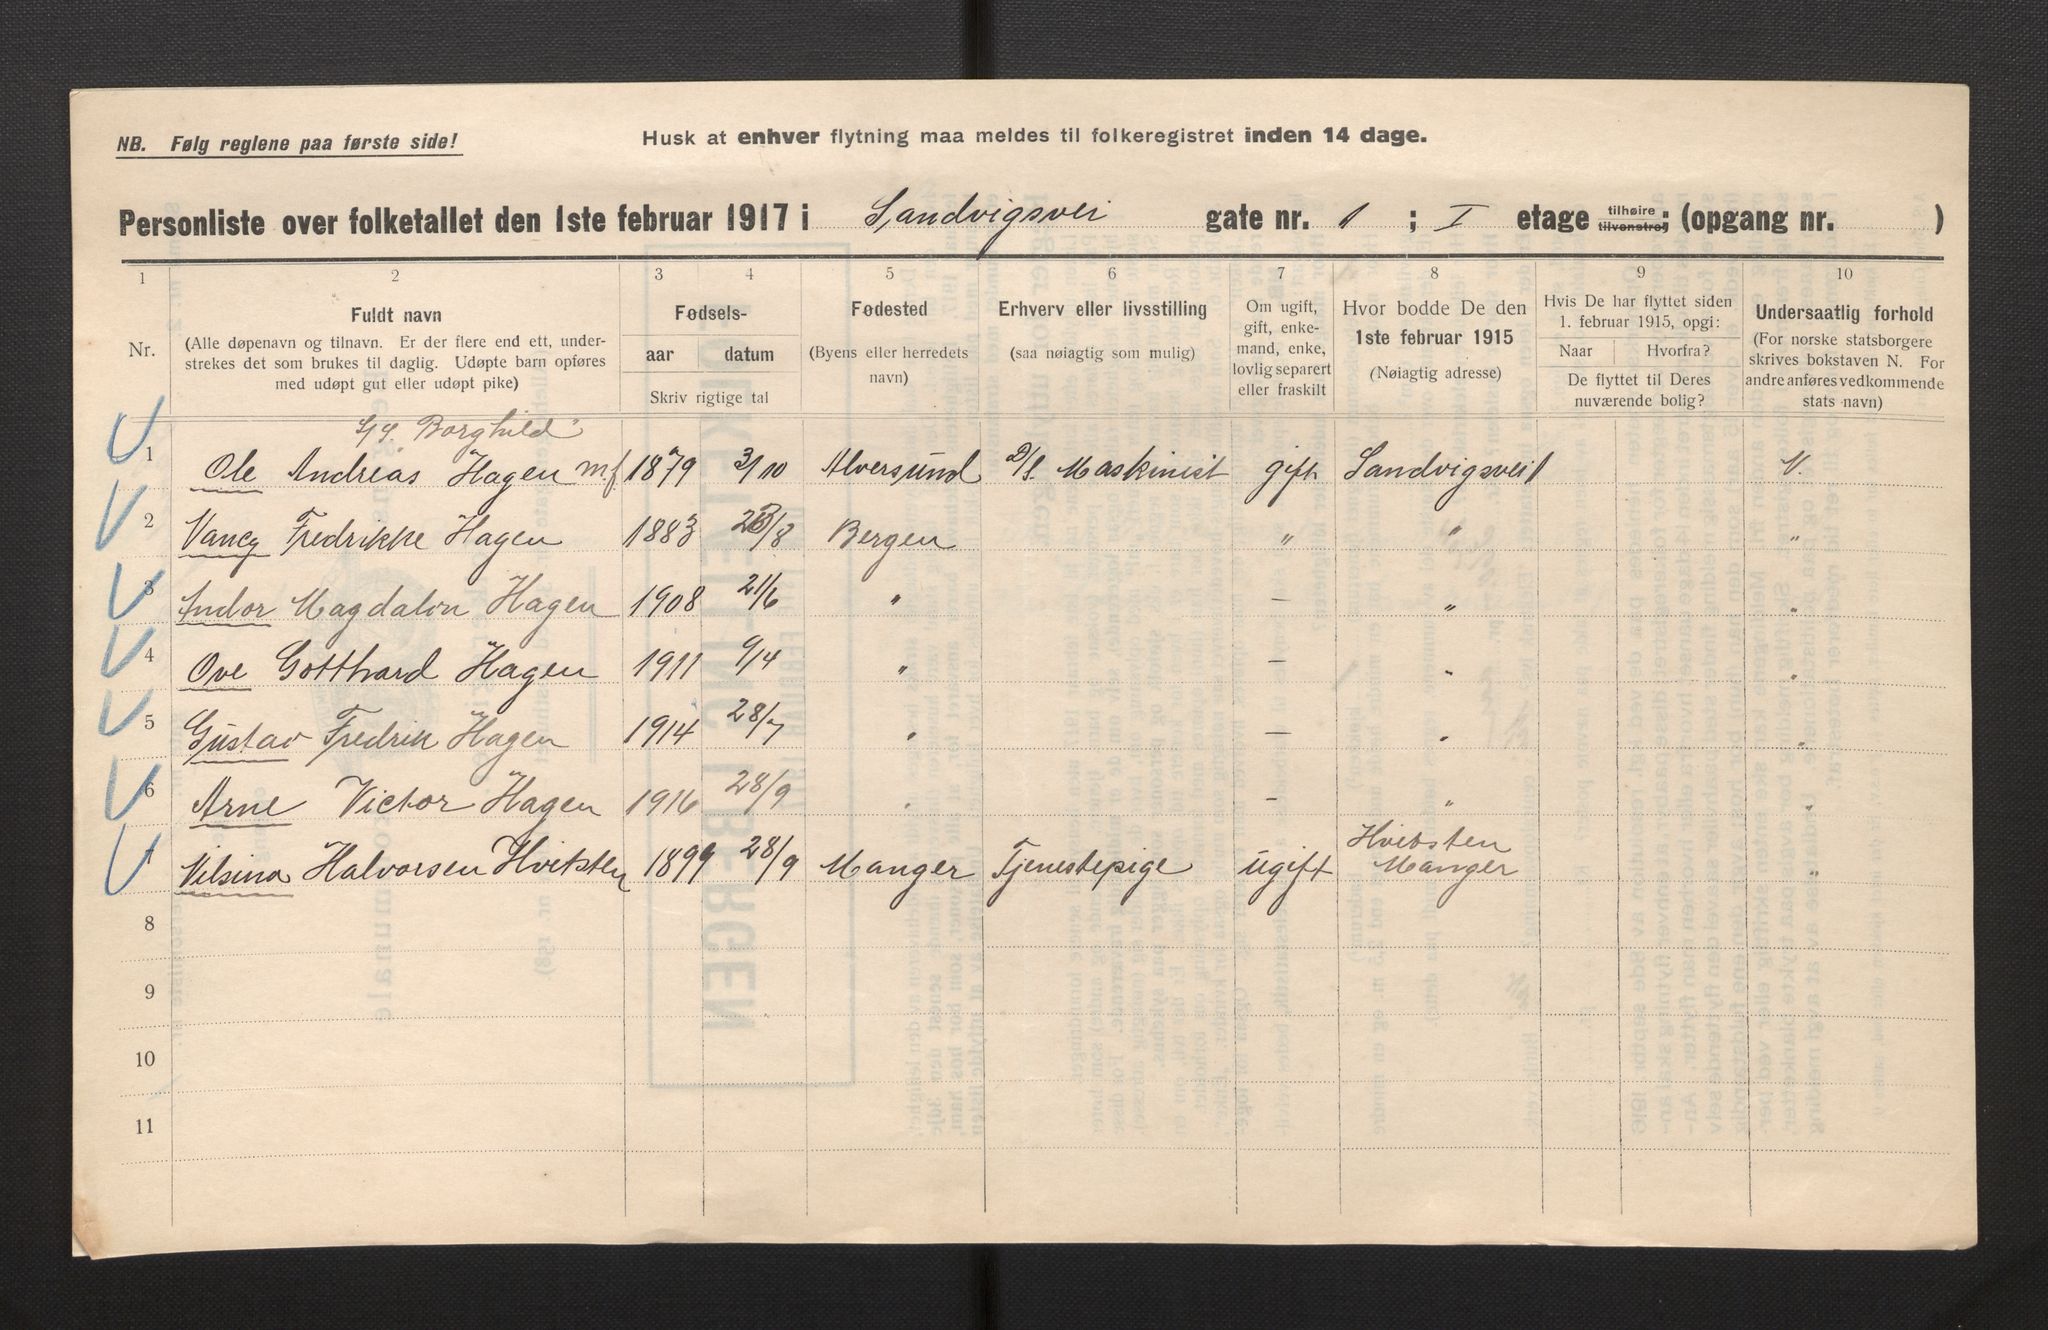 NB. Følg reglene paa første side!
Husk at enhver flytning maa meldes til folkeregistret inden 14 dage.
Personliste over folketallet den 1ste februar 1917 i Sandvigsvei gate nr. 1 ; I etage tilhøire tilvenstre; (opgang nr. )
1 2 3 4 5 6 7 8 9 10
Nr.
Fuldt navn
(Alle døpenavn og tilnavn. Er der flere end ett, under-
strekes det som brukes til daglig. Udøpte barn opføres
med udøpt gut eller udøpt pike)
Fødsels-
aar datum
Skriv rigtige tal
Fødested
(Byens eller herredets
navn)
Erhverv eller livsstilling
(saa nøiagtig som mulig)
Om ugift,
gift, enke-
mand, enke,
lovlig separert
eller fraskilt
Hvor bodde De den
1ste februar 1915
(Nøiagtig adresse)
Hvis De har flyttet siden
1. februar 1915, opgi:
Naar Hvorfra?
De flyttet til Deres
nuværende bolig?
Undersaatlig forhold
(For norske statsborgere
skrives bokstaven N. For
andre anføres vedkommende
stats navn)
Borghild
1 Ole Andreas Hagen m.f 1879 3/10 Alversund D/S. Maskinist gift Sandvigsvei 1 N.
2 Vancy Fredrikke Hagen 1883 23/8 Bergen " " "
3 Andor Magdalon Hagen 1908 21/6 " — " "
4 Ove Gotthard Hagen 1911 9/4 " — " "
5 Gustav Fredrik Hagen 1914 28/7 " — " "
6 Arne Victor Hagen 1916 28/9 " — " "
Hvidsten
7 Vilsina Halvorsen Hvitsten 1899 28/9 Manger Tjenestepige ugift Manger "
8
9
10
11